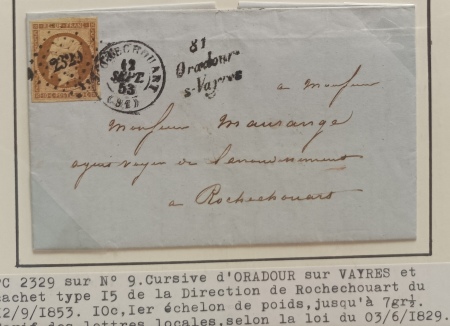 REPUB FRANC
2329
ROCHECHOUART
12
SEPT.
53
(81)
81
Oradour
s-Vayres
a Monsieur
Monsieur Maurange
agent voyer de l'arrondissement
a Rochechouart
PC 2329 sur N° 9.Cursive d'ORADOUR sur VAYRES et
cachet type I5 de la Direction de Rochechouart du
I2/9/I853. IOc,Ier échelon de poids,jusqu'à 7gr½.
Tarif des lettres locales,selon la loi du 03/6/I829.